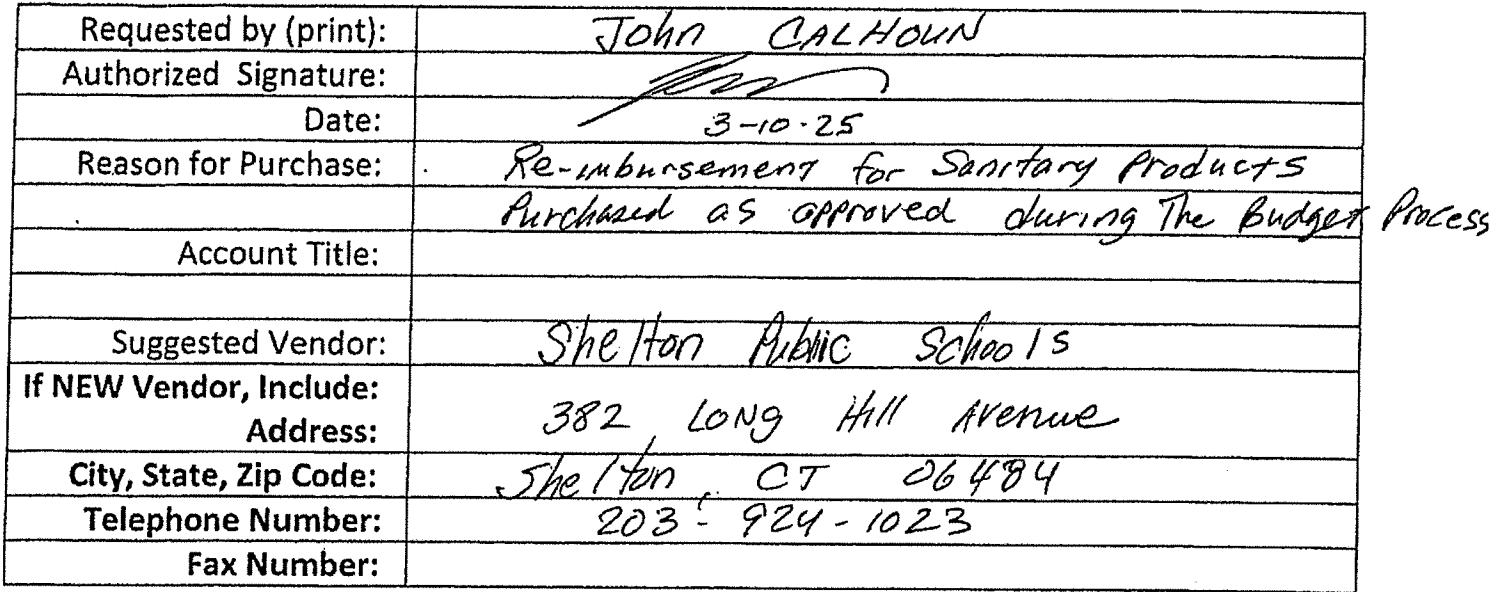 Requested by (print): John CALHOUN
Authorized Signature:
Date: 3-10-25
Reason for Purchase: Re-imbursement for Sanitary Products
Purchased as approved during The Budget Process
Account Title:
Suggested Vendor: Shelton Public Schools
If NEW Vendor, Include:
Address: 382 LONg Hill Avenue
City, State, Zip Code: Shelton, CT 06484
Telephone Number: 203-924-1023
Fax Number: